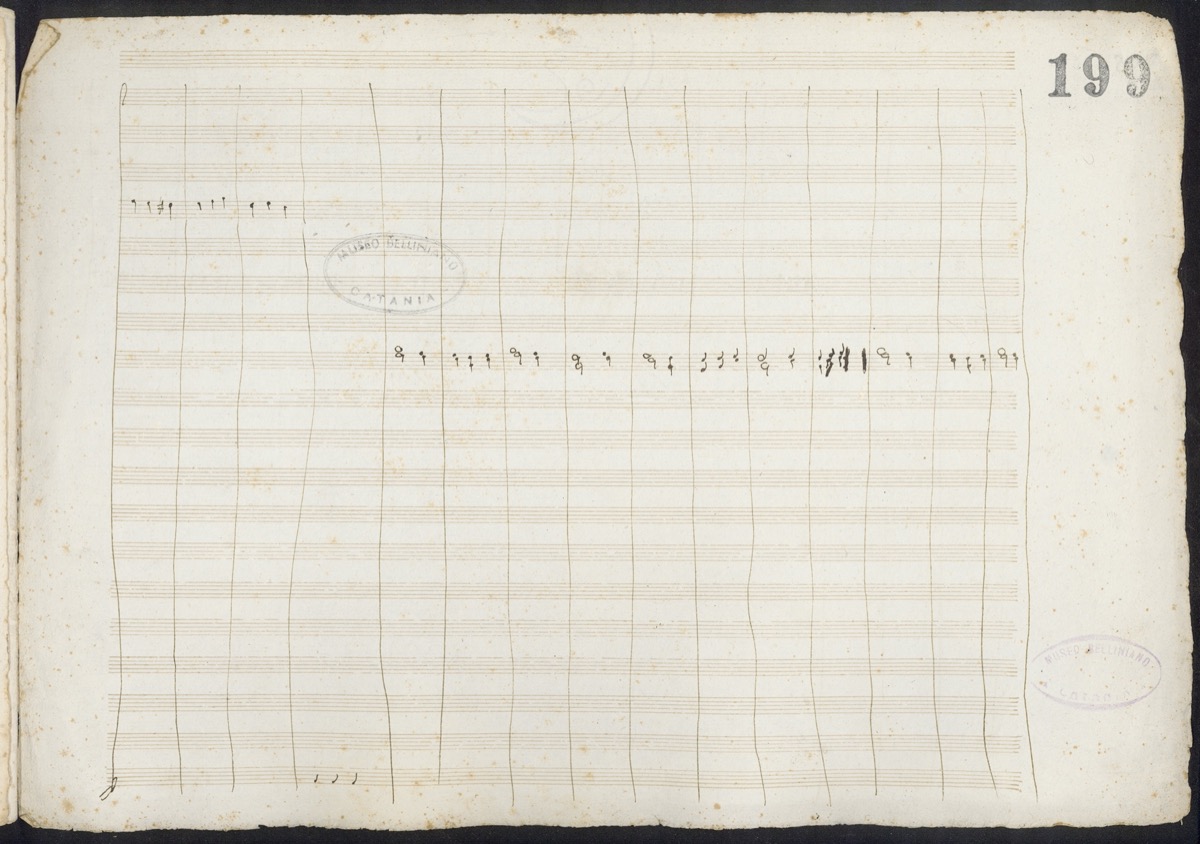 199
MUSEO BELLINIANO
CATANIA
MUSEO BELLINIANO